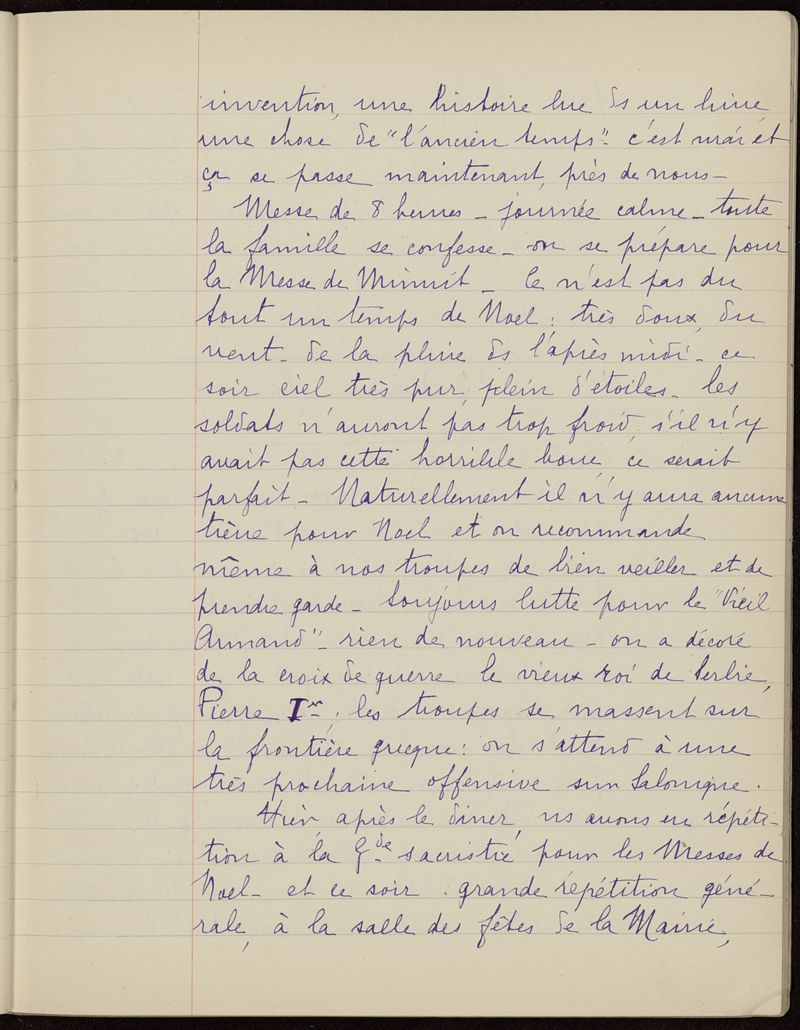 invention, une histoire lue ds un livre
une chose de "l'ancien temps" - c'est vrai et
ça se passe maintenant, près de nous -
Messe de 8 heures - journée calme - toute
la famille se confesse - on se prépare pour
la Messe de Minuit - Ce n'est pas du
tout un temps de Noel : très doux, du
vent - de la pluie ds l'après midi - ce
soir ciel très pur, plein d'étoiles - les
soldats n'auront pas trop froid, s'il n'y
avait pas cette horrible boue, ce serait
parfait - Naturellement il n'y aura aucune
trève pour Noel et on recommande
même à nos troupes de bien veiller et de
prendre garde - toujours lutte pour le "Vieil
Armand" - rien de nouveau - on a décoré
de la croix de guerre le vieux roi de Serbie,
Pierre Ier ; les troupes se massent sur
la frontière grecque : on s'attend à une
très prochaine offensive sur Salonique.
Hier après le diner, ns avons eu répéti-
tion à la Gde sacristie pour les Messes de
Noel - et ce soir : grande répétition géné-
rale, à la salle des fêtes de la Mairie,